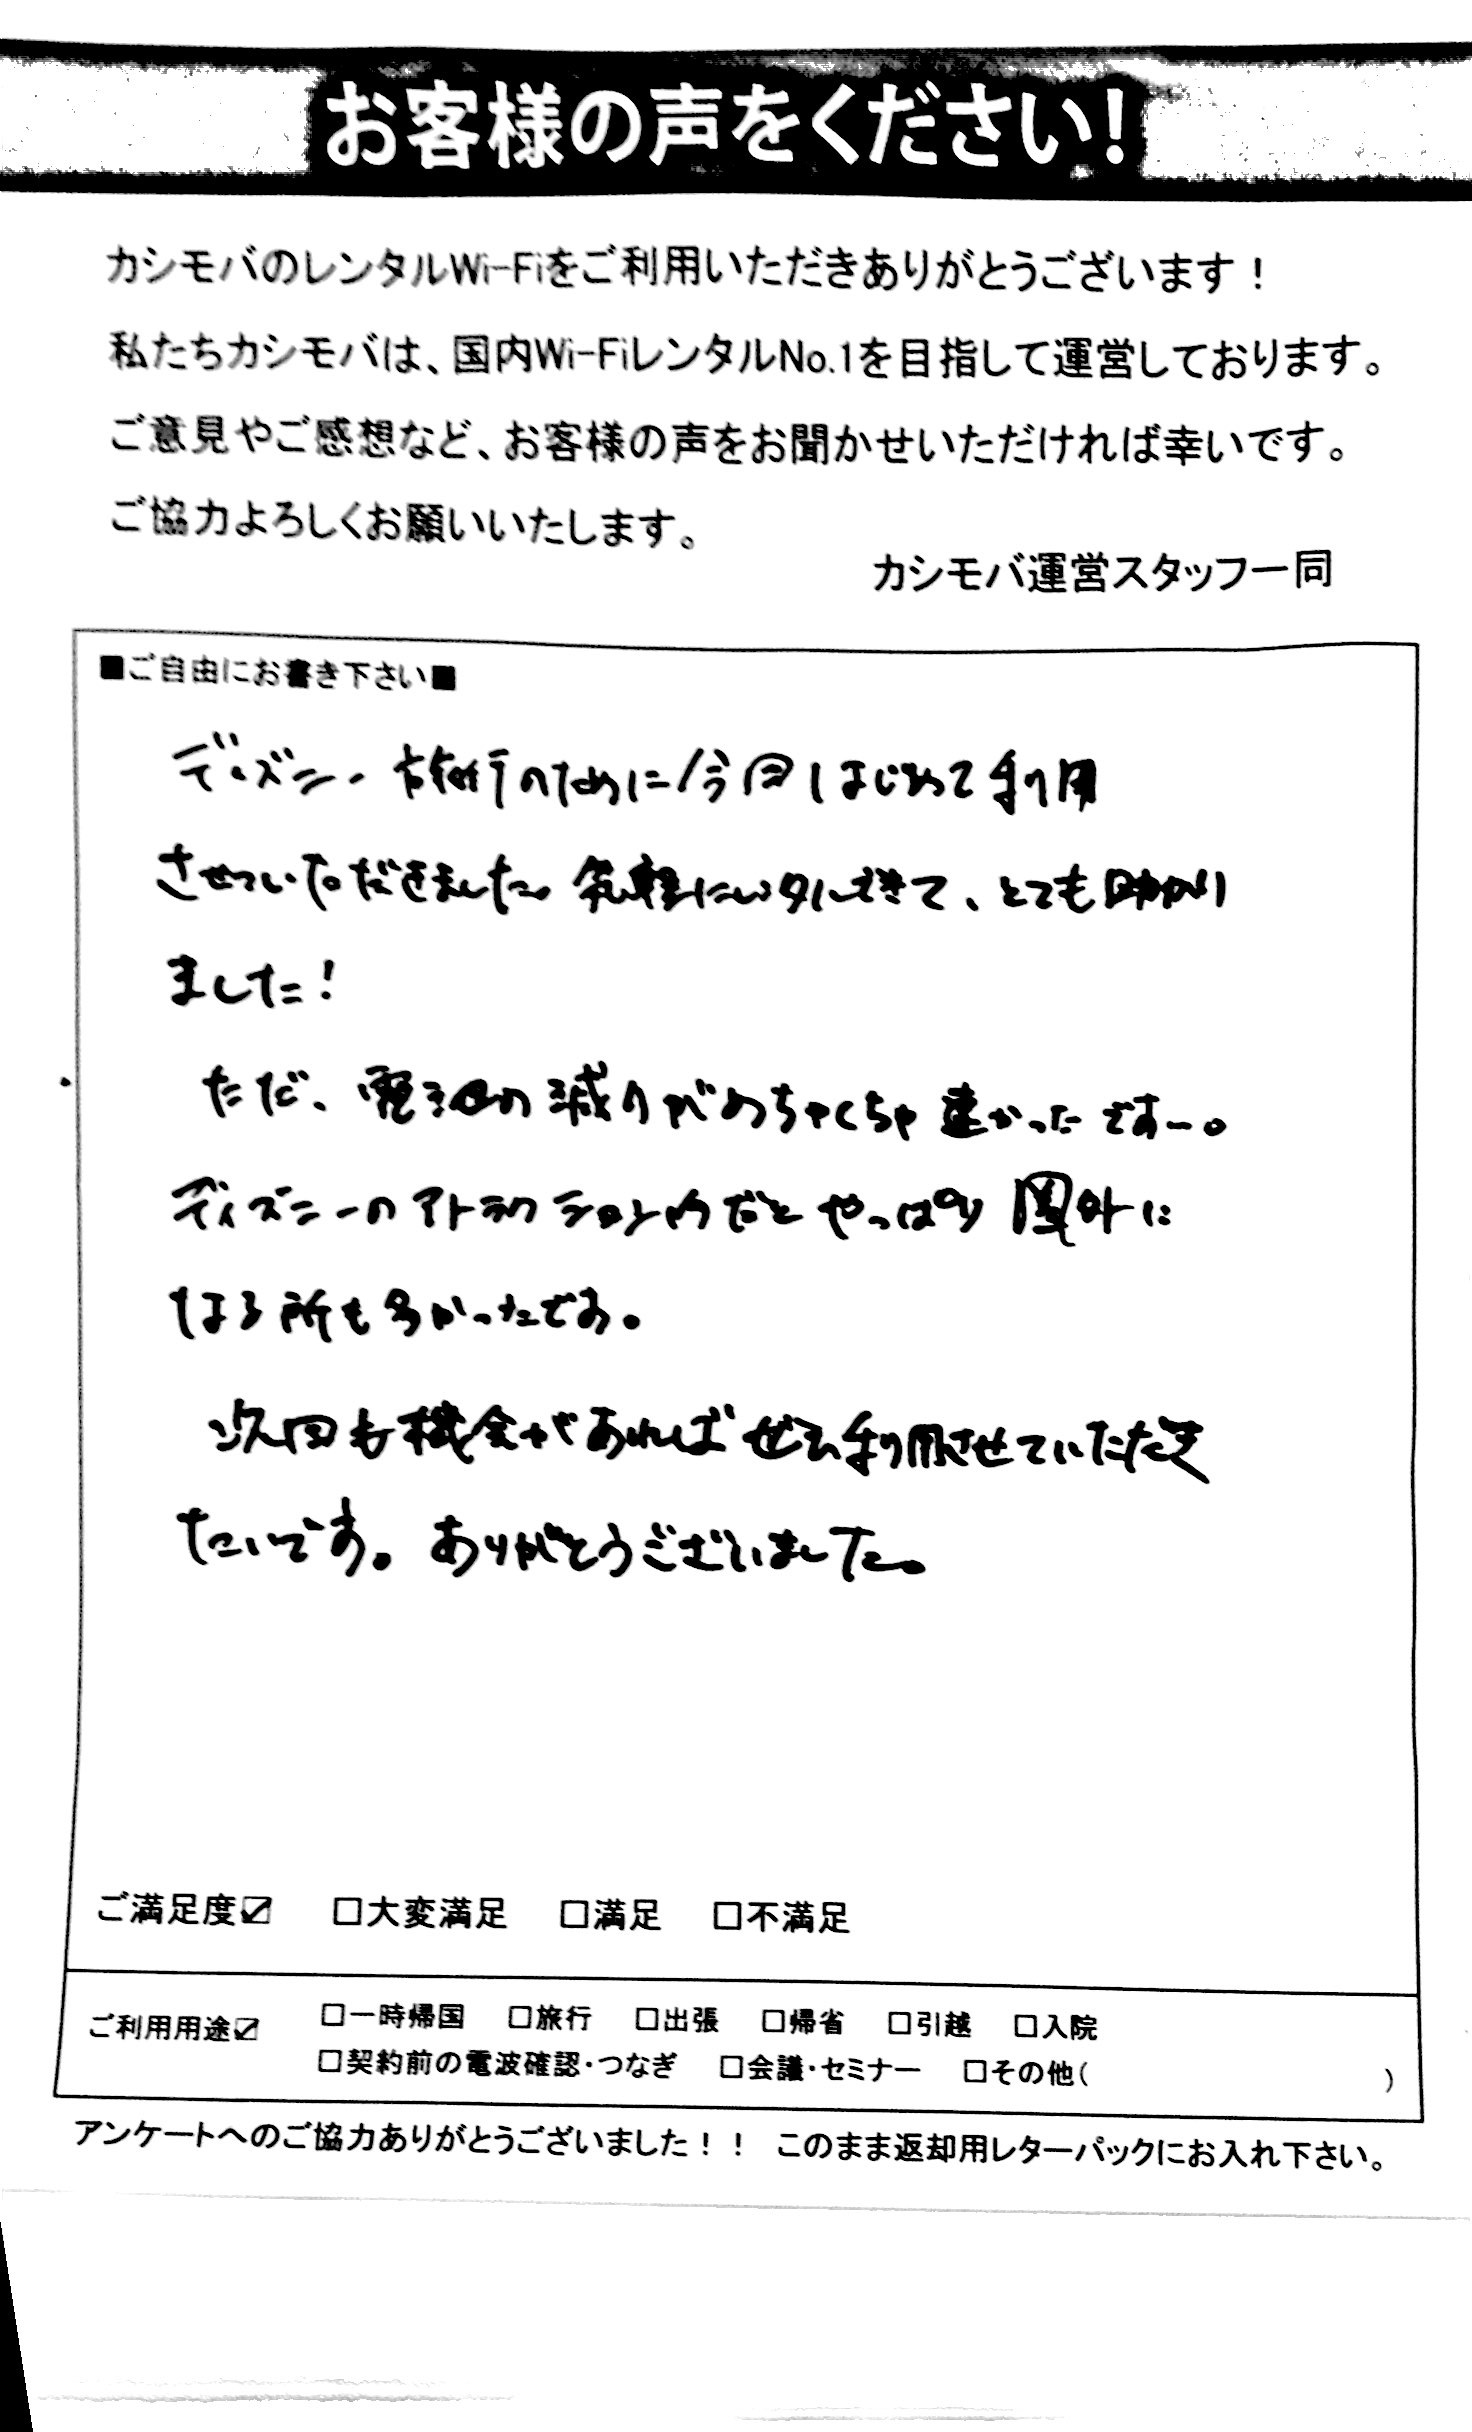 お客様の声をください!
カシモバのレンタルWi-Fiをご利用いただきありがとうございます！
私たちカシモバは、国内Wi-FiレンタルNo.1を目指して運営しております。
ご意見やご感想など、お客様の声をお聞かせいただければ幸いです。
ご協力よろしくお願いいたします。
カシモバ運営スタッフ一同
■ご自由にお書き下さい■
ディズニー旅行のために今回はじめて利用
させていただきました。気軽にレンタルできて、とても助かり
ました！
ただ、電池の減りがめちゃくちゃ速かったですー。
ディズニーのアトラクション内だとやっぱり圏外に
なる所も多かったです。
次回も機会があればぜひ利用させていただき
たいです。ありがとうございました。
ご満足度☑ □大変満足 □満足 □不満足
ご利用用途☑ □一時帰国 □旅行 □出張 □帰省 □引越 □入院
□契約前の電波確認・つなぎ □会議・セミナー □その他( )
アンケートへのご協力ありがとうございました！！ このまま返却用レターパックにお入れ下さい。